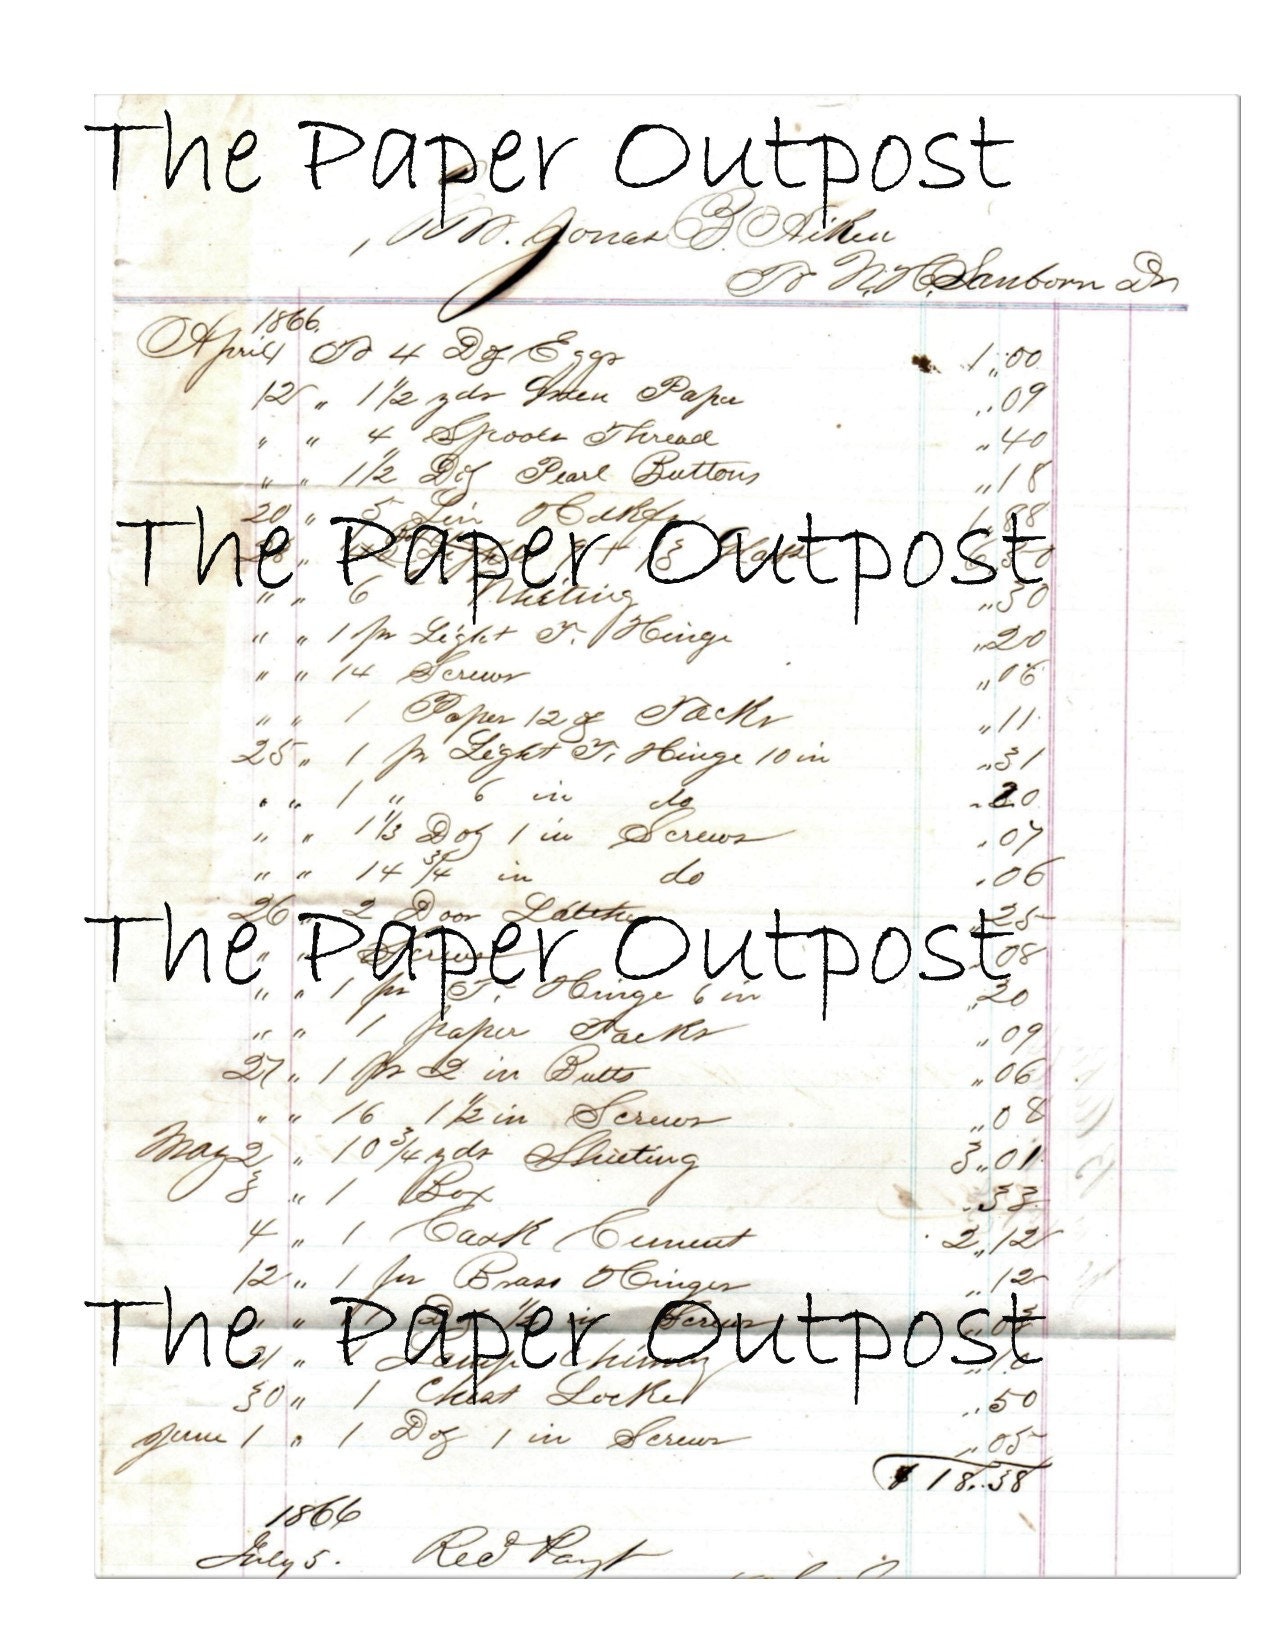 The Paper Outpost
Mr. Jonas B. Aiken
To N. H. Sanborn Dr
1866.
April 4 To 4 Doz Eggs 1.00
12 " 1 1/2 yds Green Paper .09
" " 4 Spools Thread .40
" " 1 1/2 Doz Pearl Buttons .18
20 " 5 Lin Hdkfs 1.88
The Paper Outpost
" " 6 .30
" " 1 pr Light T. Hinge .20
" " 14 Screws .06
" " 1 Paper 12 oz Tacks .11
25 " 1 pr Light T. Hinge 10 in .31
" " 1 " 6 in do .20
" " 1 1/3 Doz 1 in Screws .07
" " 14 3/4 in do .06
26 " 2 Door Latches .25
The Paper Outpost
" " Screws .08
" " 1 pr T. Hinge 6 in .20
" " 1 paper Tacks .09
27 " 1 pr 2 in Butts .06
" " 16 1 1/2 in Screws .08
May 2 " 10 3/4 yds Shirting 3.01
3 " 1 Box .33
4 " 1 Cask Cement 2.12
12 " 1 pr Brass Hinges .12
The Paper Outpost
" " 1 Doz 1/2 in Screws
21 " 1 Lamp Chimney .10
30 " 1 Chest Locke .50
June 1 " 1 Doz 1 in Screws .05
$18.38
1866
July 5. Recd Payt